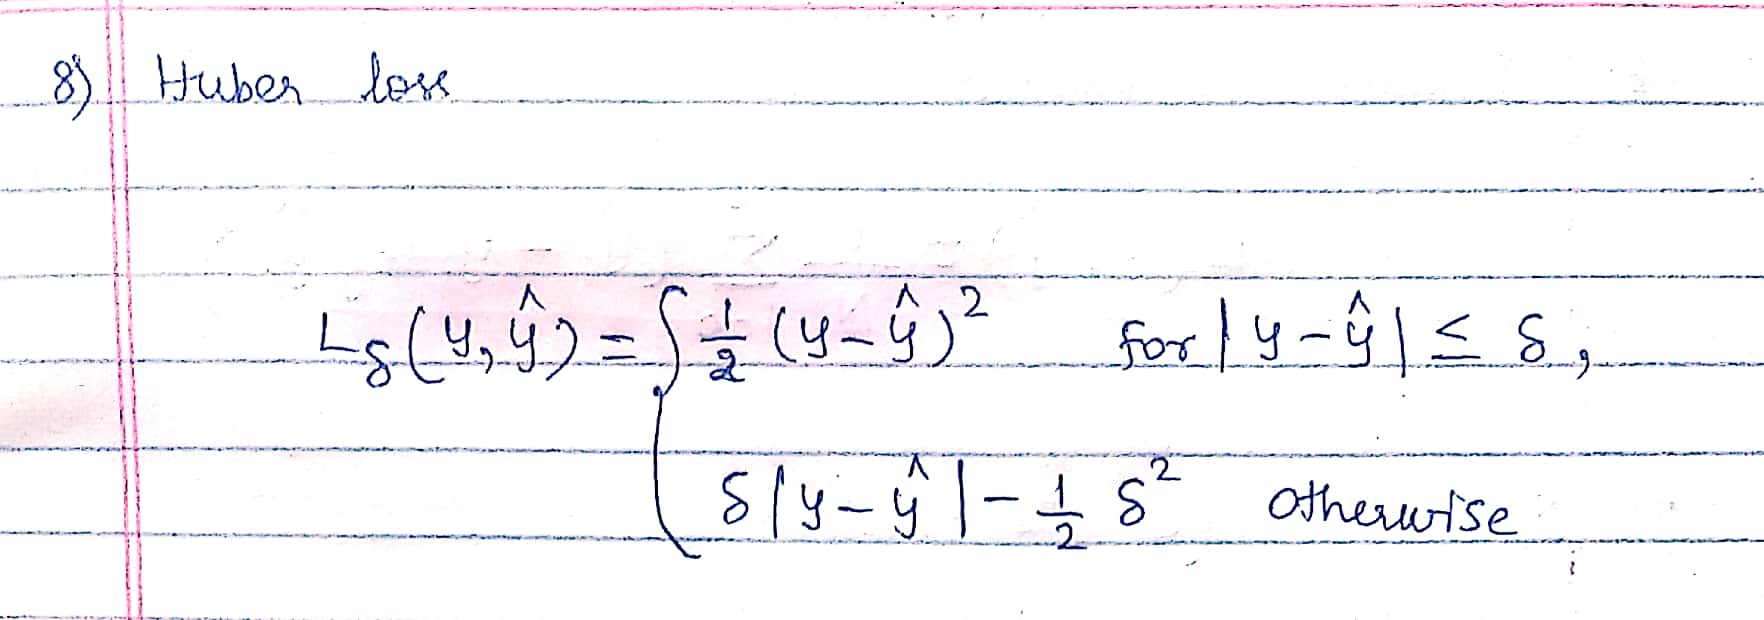 8) Huber loss
L_δ(y, ŷ) = { 1/2 (y - ŷ)² for |y - ŷ| ≤ δ,
δ|y - ŷ| - 1/2 δ² otherwise